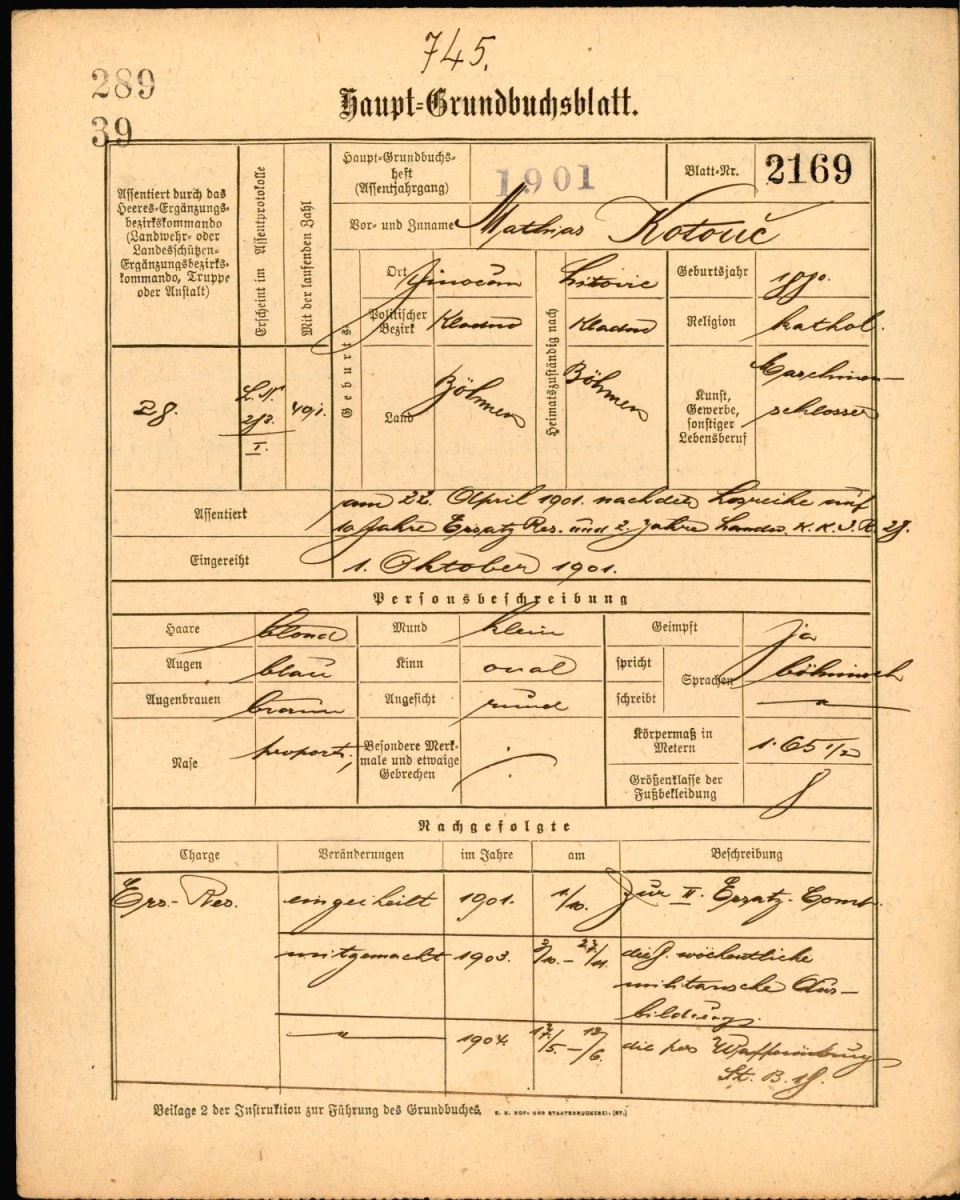 745.
289
39
Haupt-Grundbuchsblatt.
Assentiert durch das
Heeres-Ergänzungs-
bezirkskommando
(Landwehr- oder
Landesschützen-
Ergänzungsbezirks-
kommando, Truppe
oder Anstalt)
Erscheint im Assentprotokolle
Mit der laufenden Zahl
28.
I.
Haupt-Grundbuchs-
heft
(Assentjahrgang)
1901
Blatt-Nr.
2169
Vor- und Zuname
Mathias Kotouč
Geboren
Ort
Jinočan
Politischer
Bezirk
Kladno
Land
Böhmen
Heimatszuständig nach
Litovic
Kladno
Böhmen
Geburtsjahr
1880.
Religion
kathol.
Kunst,
Gewerbe,
sonstiger
Lebensberuf
Maschinen-
schlosser
Assentiert
am 22. April 1901. nach der Losreihe auf
10 Jahre Ersatz Res. und 2 Jahre Landw. K. K. I. R. 28.
Eingereiht
1. Oktober 1901.
Personsbeschreibung
Haare
blond
Mund
klein
Geimpft
ja
Augen
blau
Kinn
oval
spricht
schreibt
Sprachen
böhmisch
"
Augenbrauen
braun
Angesicht
rund
Nase
proport.
Besondere Merk-
male und etwaige
Gebrechen
Körpermaß in
Metern
1·65 1/2
Größenklasse der
Fußbekleidung
8
Nachgefolgte
Charge
Veränderungen
im Jahre
am
Beschreibung
Ers.- Res.
eingetheilt 1901. 1/10. zur II. Ersatz-Comp.
mitgemacht 1903. 3/10. – 27/11. die 8. wöchentliche
militärische Aus-
bildung.
" 1904. 17/5. – 13/6. die Waffenübung
St. B. 18.
Beilage 2 der Instruktion zur Führung des Grundbuches.
K. K. HOF- UND STAATSDRUCKEREI. (ST.)